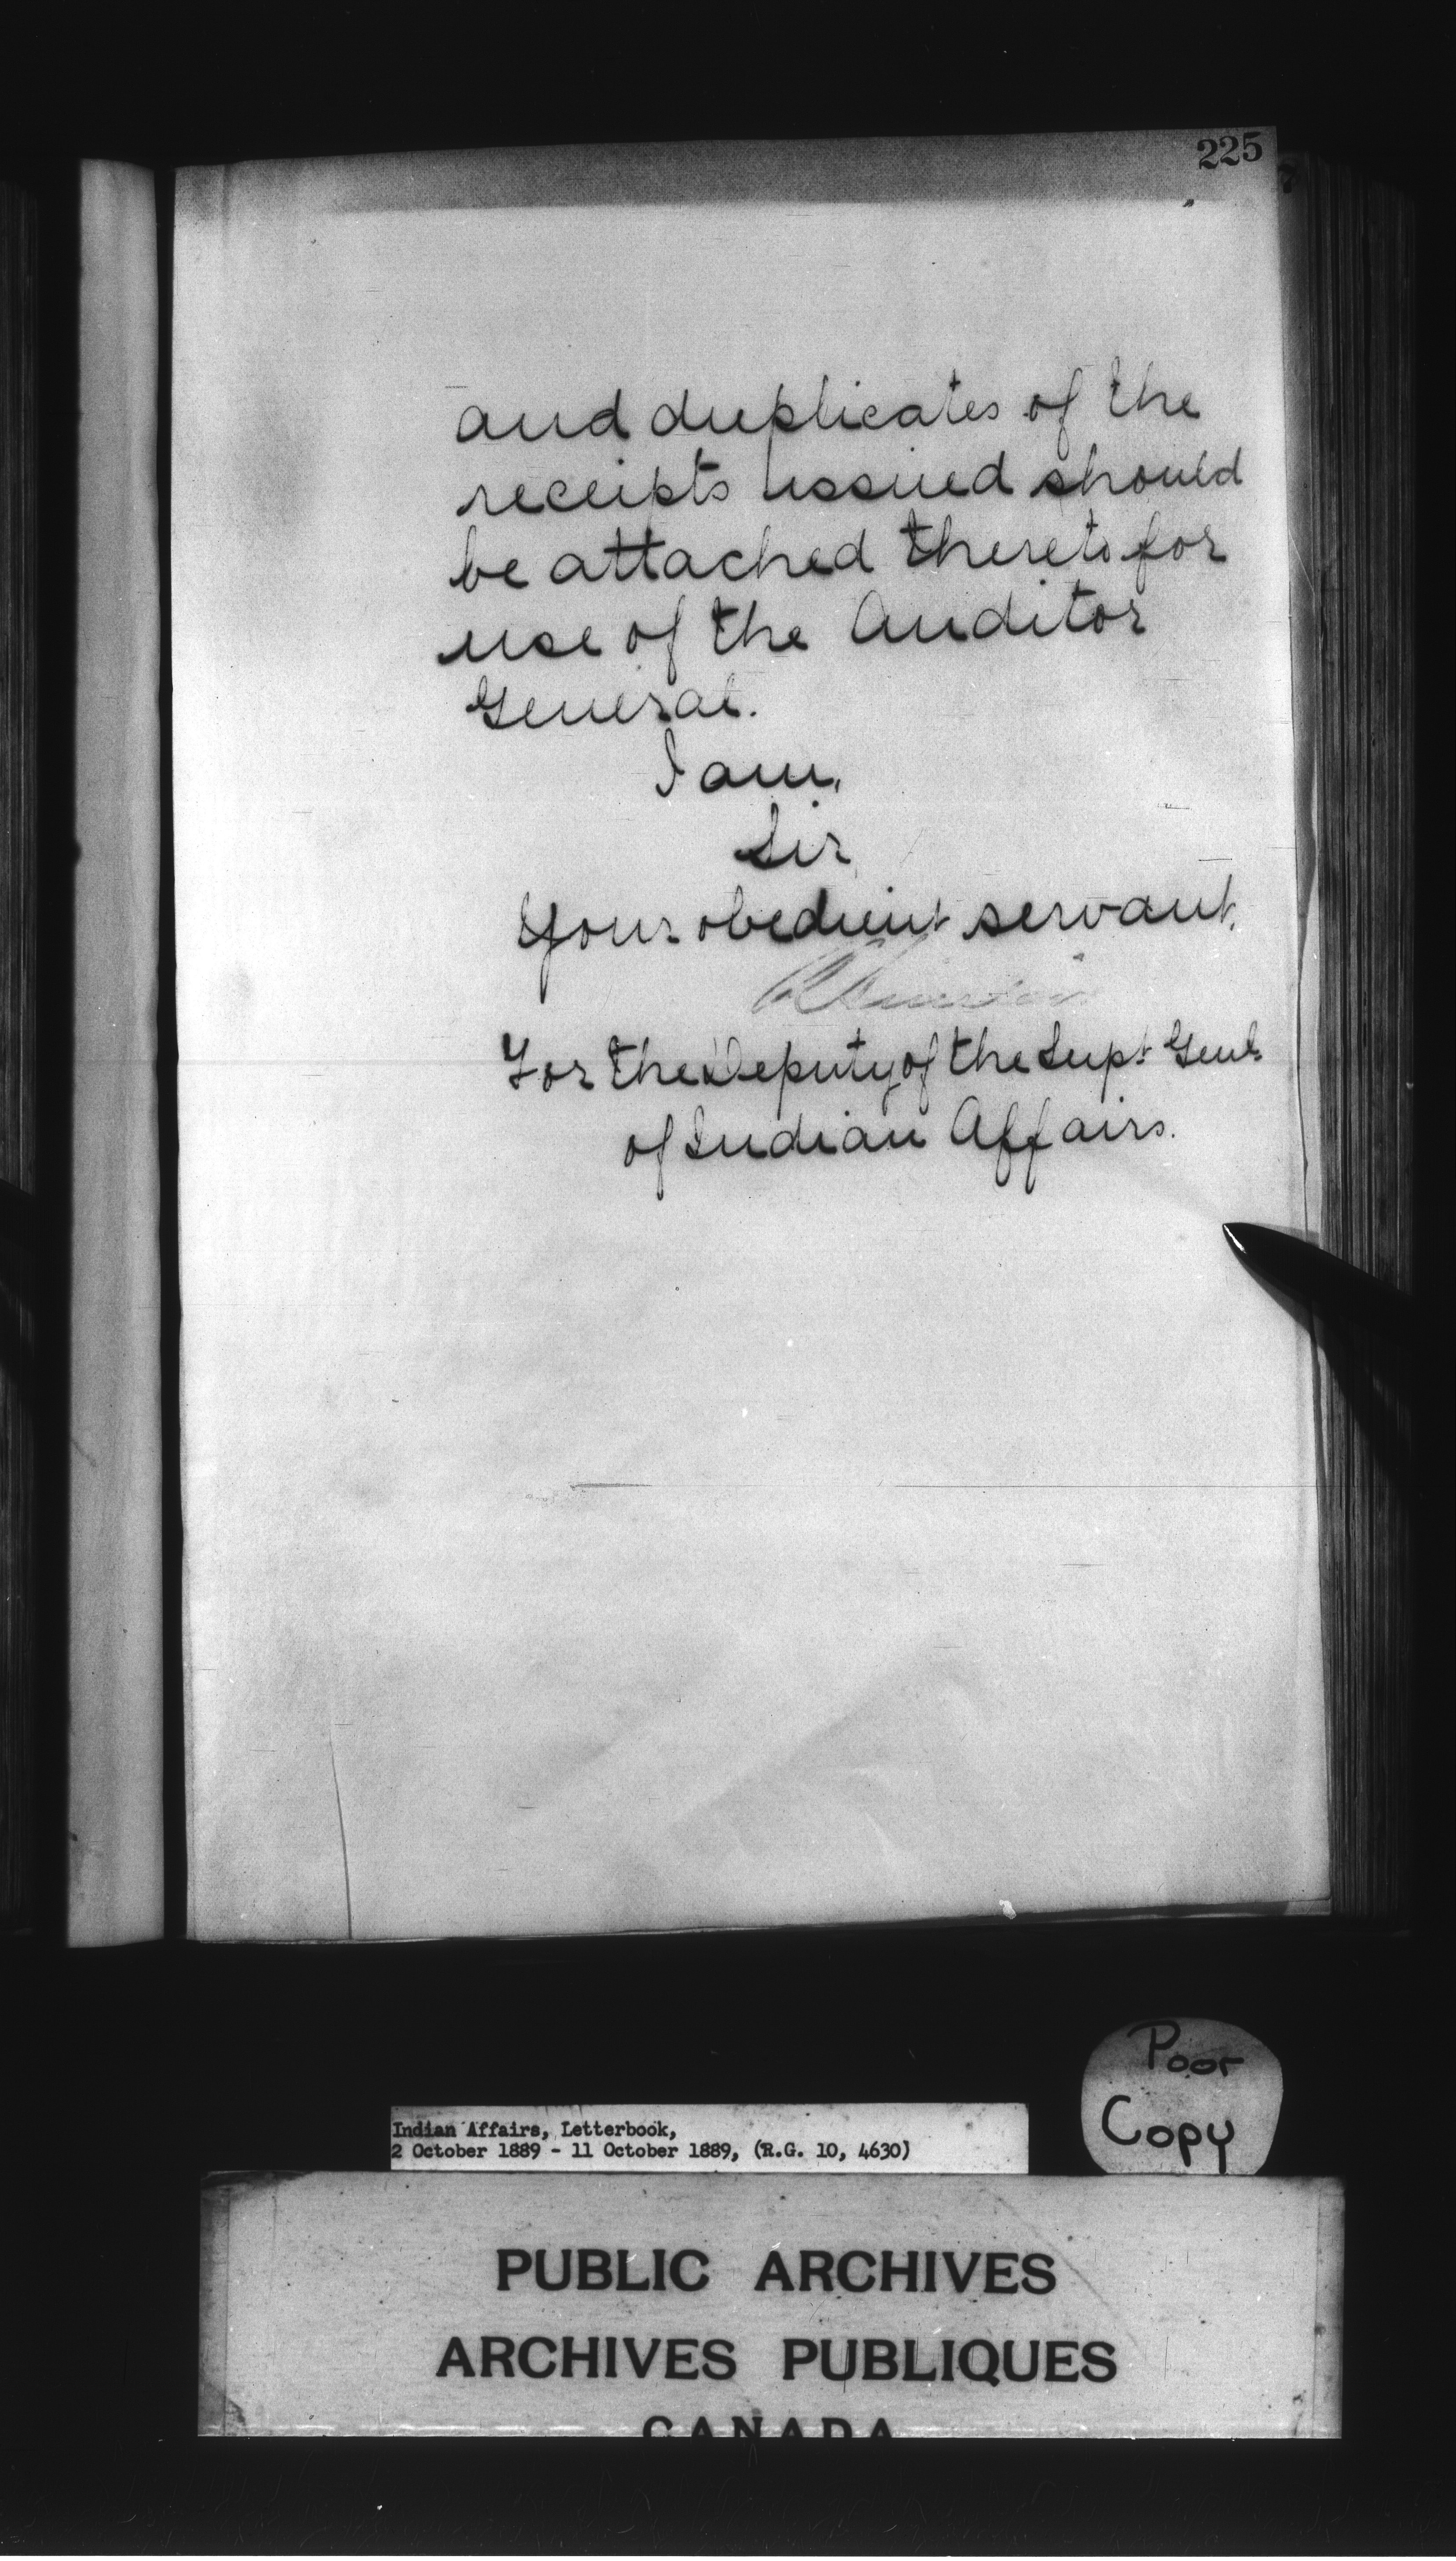 225
and duplicates of the
receipts issued should
be attached thereto for
use of the Auditor
General.
I am,
Sir,
Your obedient servant,
For the Deputy of the Supt Genl.
of Indian Affairs.
Poor
Copy
Indian Affairs, Letterbook,
2 October 1889 - 11 October 1889, (R.G. 10, 4630)
PUBLIC ARCHIVES
ARCHIVES PUBLIQUES
CANADA